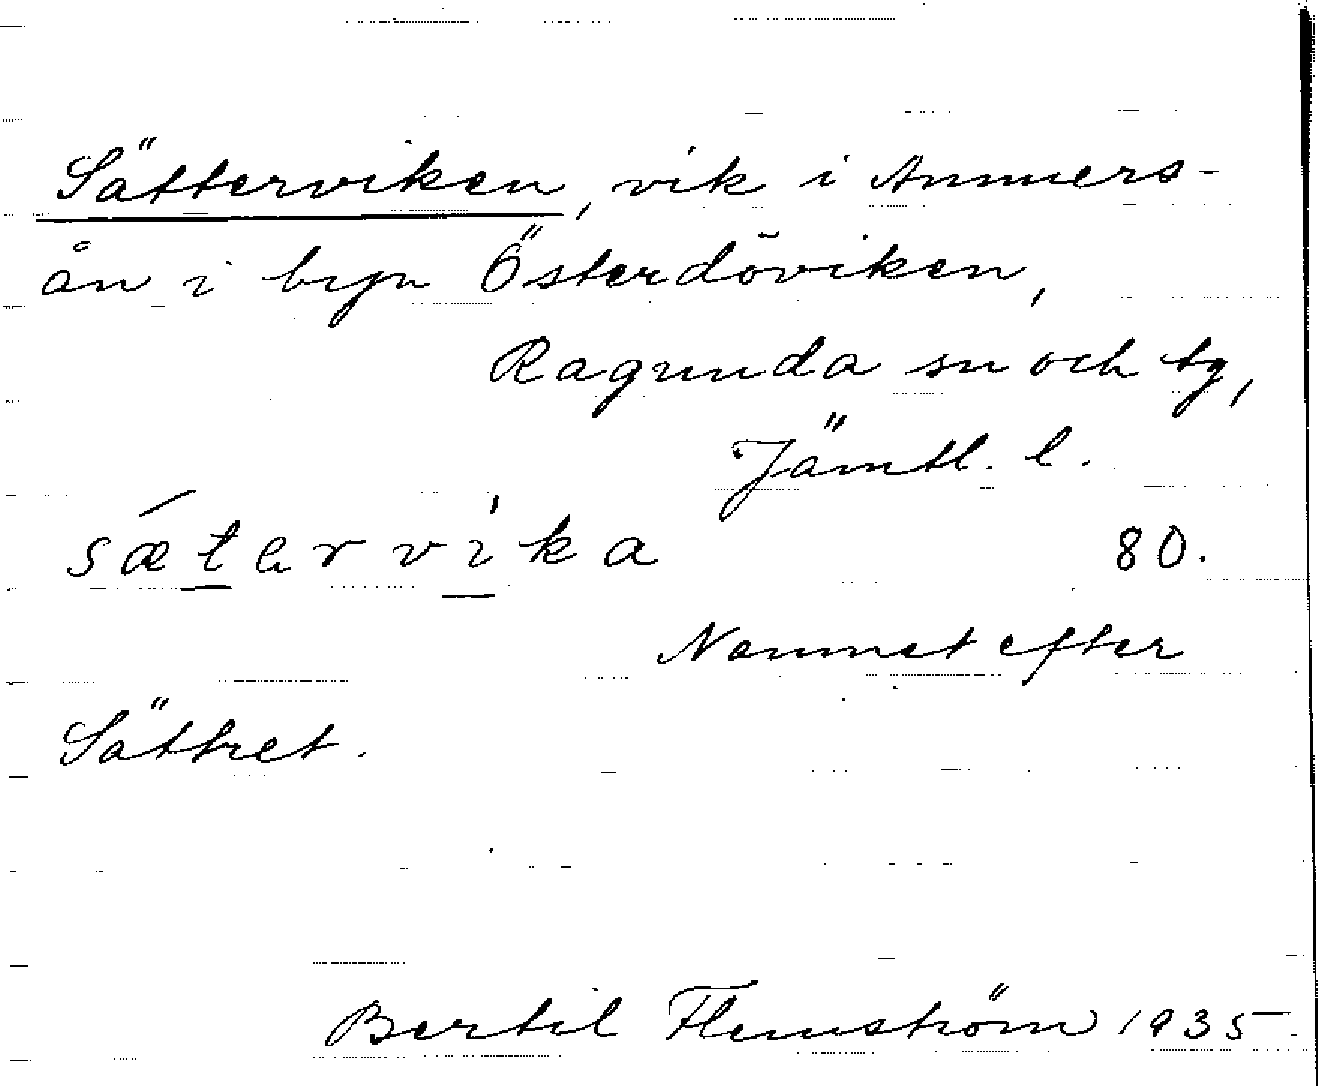 Sätterviken, vik i Ammers-
ån i byn Österdöviken,
Ragunda sn och tg,
Jämtl. l.
sǽtervı̍ka 80.
Namnet efter
Sättret.
Bertil Flemström 1935.